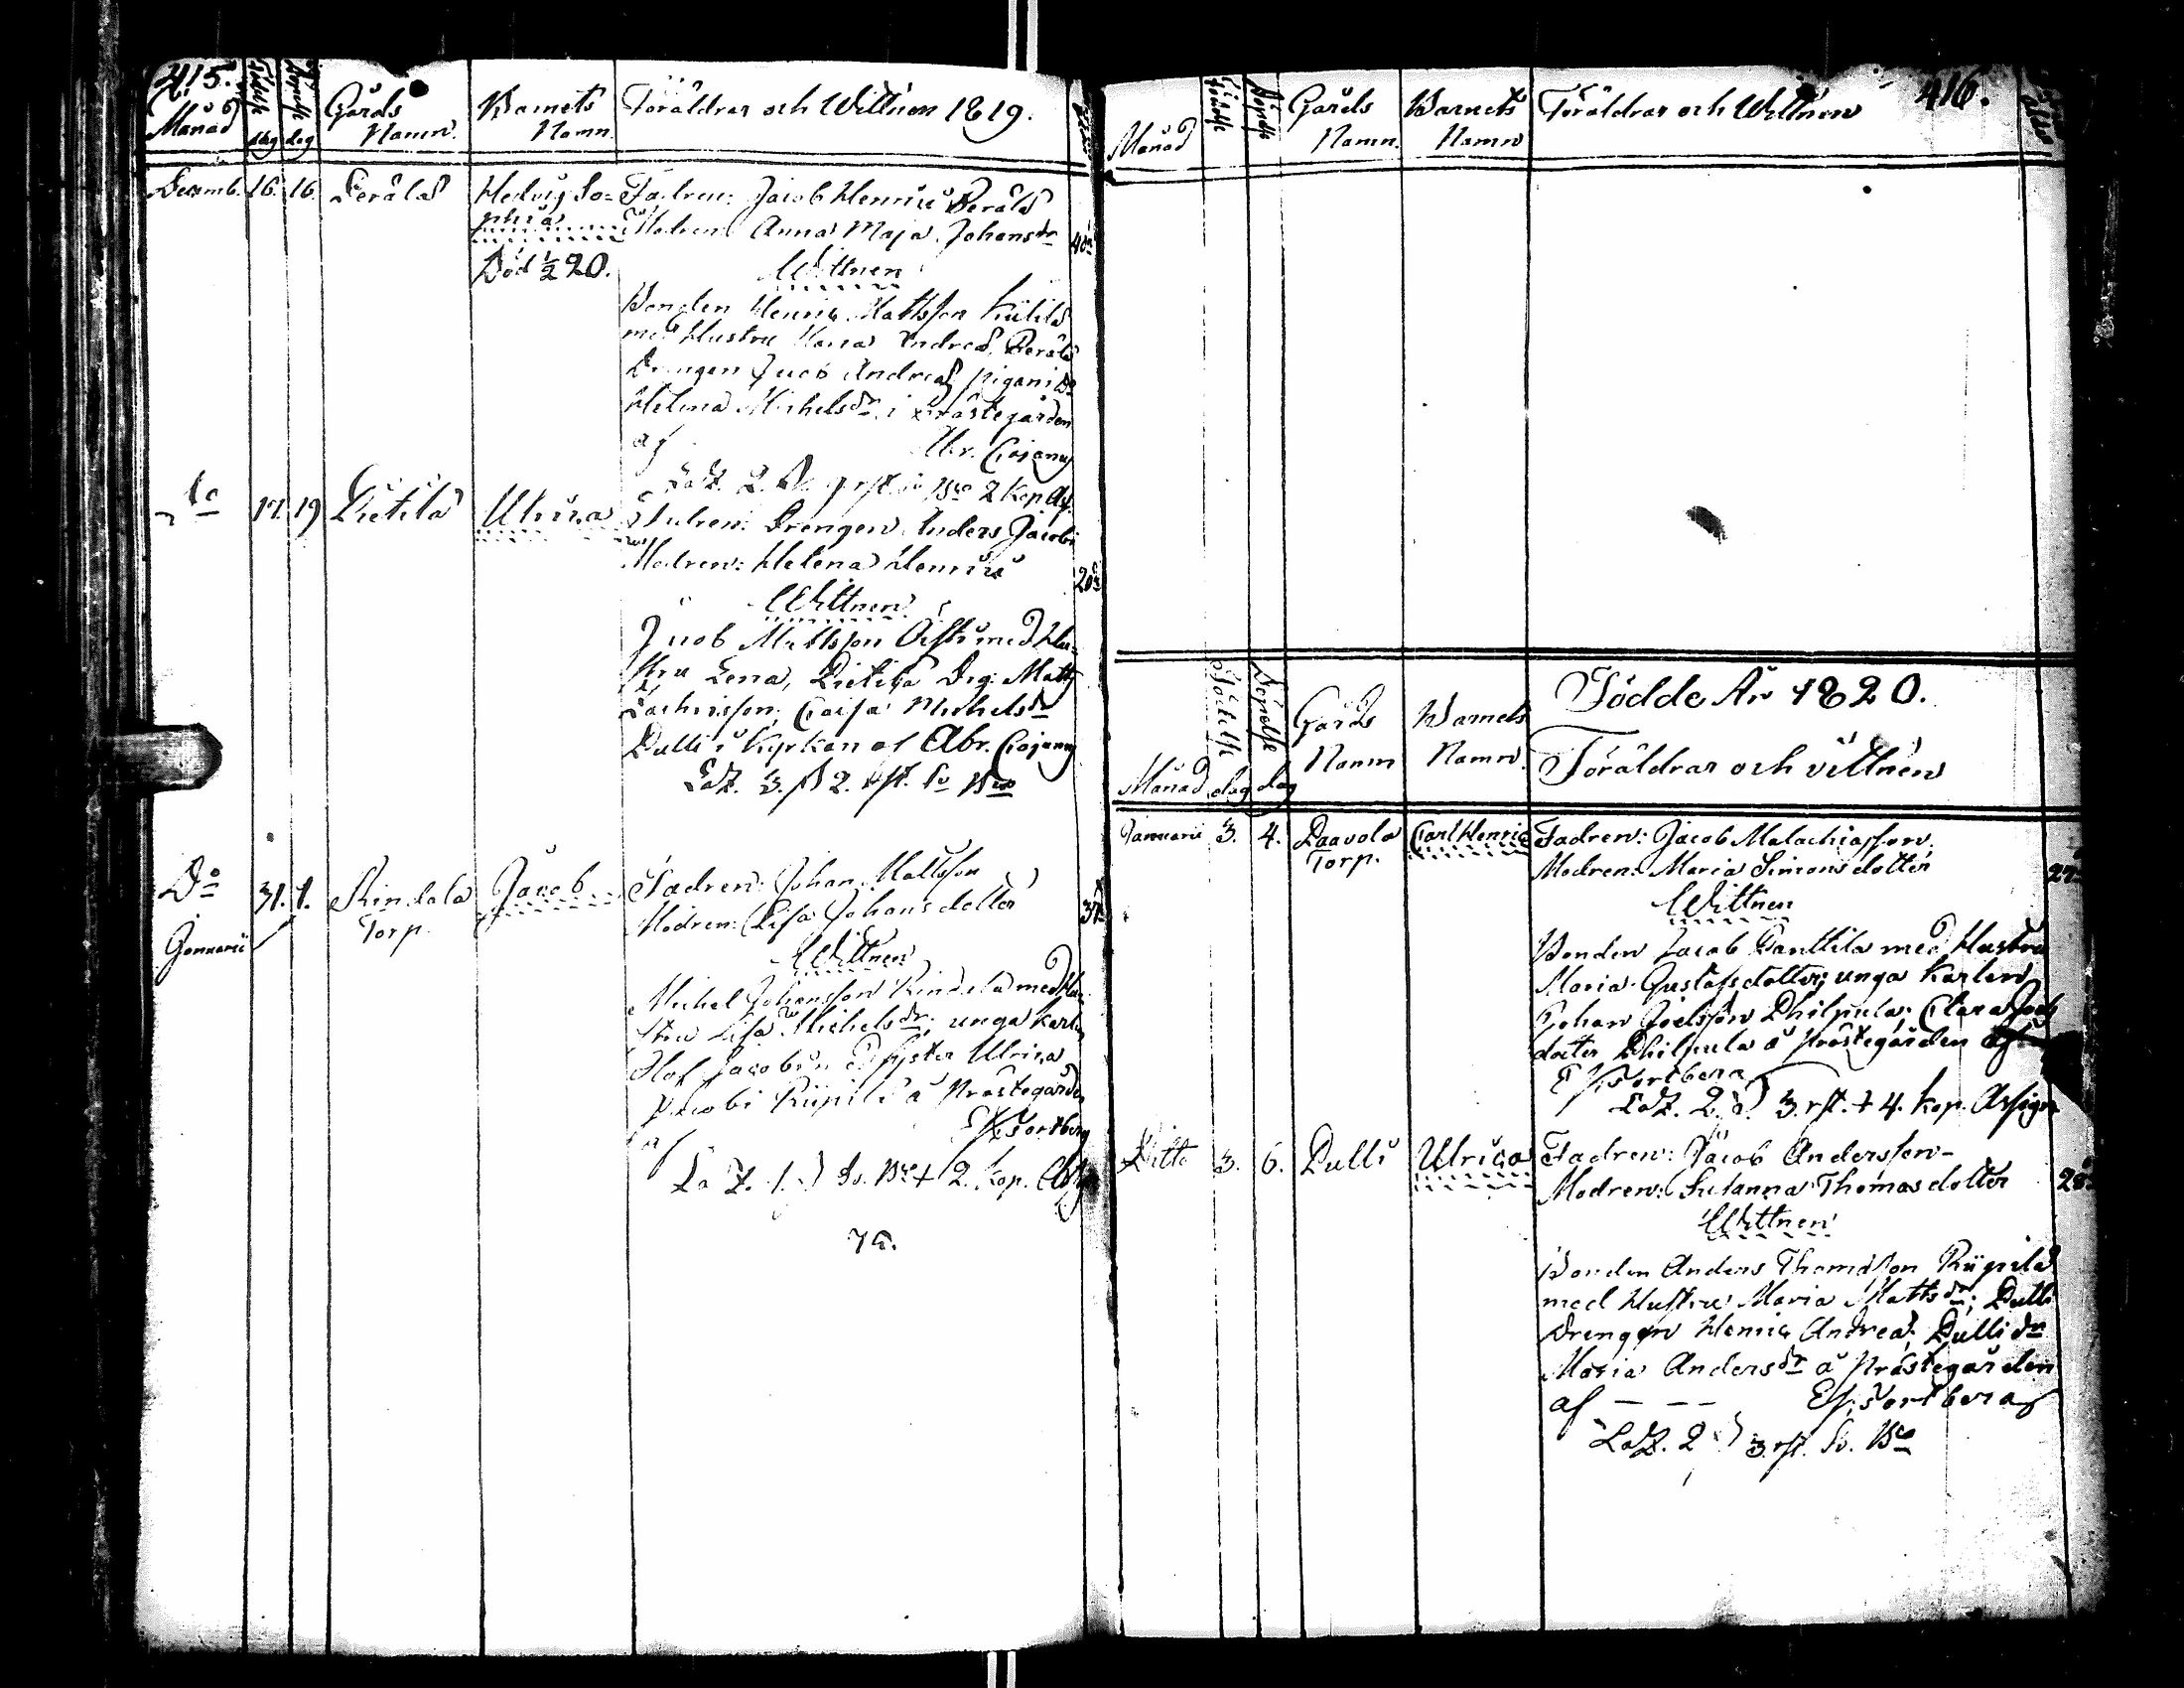 415.
Månad
Födelse dag
Döpelse dag
Gårds Namn.
Barnets Namn.
Föräldrar och Wittnen 1819.
Decemb. 16. 16. Perälä Hedvig So=
phia
Död ½ 20.
Fadren: Jacob Henrici Perälä
Modren: Anna Maja Johansdr
40
Wittnen
Bonden Henric Mathsson
med Hustru Andreae, Perälä
Drengen Jacob Andreae, pigan
Helena Michelsdr. i Prästegården
af Abr. Cajanus
2 Kop. Ass.
Do 17. 19 Pietilä Ulrica
Fadren: Drengen Anders Jacobi
Modren: Helena Henrici
20
Wittnen
Jacob Mattsson med Hu=
stru Lena, Pietilä Drg: Matts
Zachrisson, Caisa Michelsdr
Pulli i Kyrkan af Abr. Cajanus
3. 2. rst. Sv Bco
Do 31. 1. Rindala Torp. Jacob
Januarii
Fadren: Johan Mattsson
Modren: Lisa Johansdotter
37
Wittnen
Michel Johansson Rindala med Hu=
stru Lisa Michelsdr; unga Karlen
Olof Jacobi Syster Ulrica
Jacobi Riipilä å Prästegården
af E. Hjortberg
1. Sv. Bco + 2. Kop.
75.
416.
Månad
Födelse
Döpelse
Gårds Namn.
Barnets Namn
Föräldrar och Wittnen
Födde År 1820.
Månad
Födelse dag
Döpelse dag
Gårds Namn
Barnets Namn.
Föräldrar och vittnen
Januarii 3. 4. Paavola Torp. Carl Henric
Fadren: Jacob Malachiasson
Modren: Maria Simonsdotter
27
Wittnen
Bonden Jacob Panttila med Hustru
Maria Gustafsdotter; unga Karlen
Johan Joelsson Philpula; Clara Joels
dotter Philpula å Prästegården af
E Hjortberg
2. 3. rst. + 4. kop. Assign
Ditto 3. 6. Pulli Ulrica
Fadren: Jacob Andersson
Modren: Susanna Thomasdotter
28
Wittnen
Bonden Anders Thomasson Riipilä
med Hustru Maria Mattsdr; Pulli
Drengen Henric Andreae; Pulli dr
Maria Andersdr å Prästegården
af — — — E Hjortberg
2 3. rst. Sv. Bco